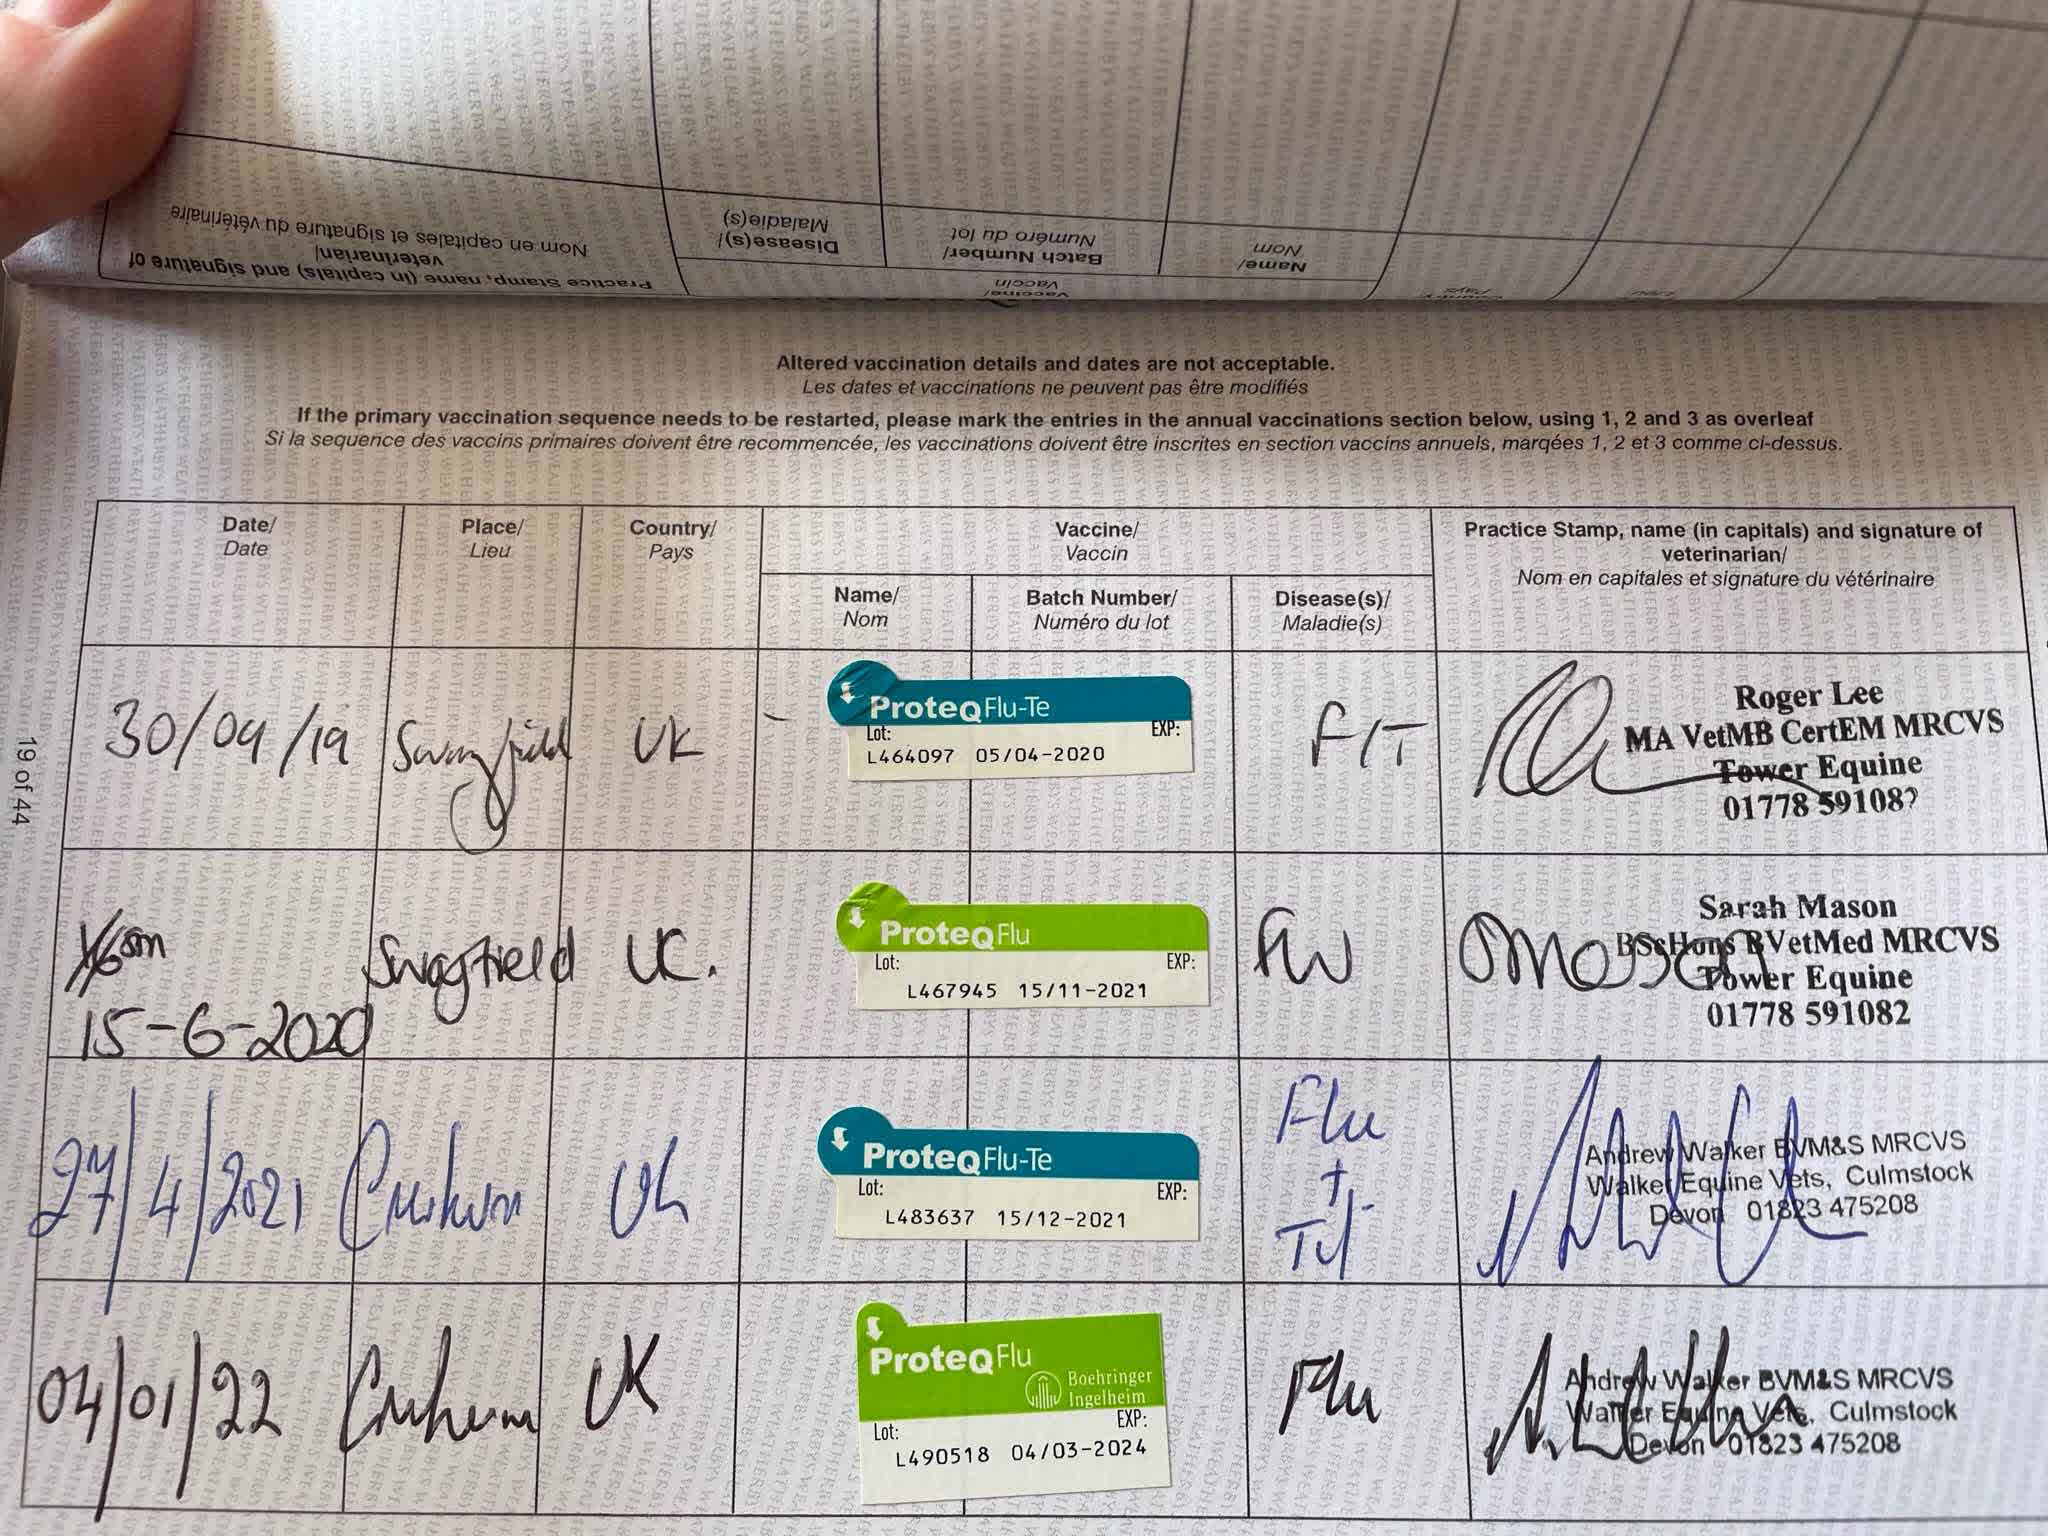 Practice Stamp, name (in capitals) and signature of
veterinarian/
Nom en capitales et signature du vétérinaire
Vaccine/
Vaccin
Disease(s)/
Maladie(s)
Batch Number/
Numéro du lot
Name/
Nom
Country/
Pays
Lieu
Altered vaccination details and dates are not acceptable.
Les dates et vaccinations ne peuvent pas être modifiés
If the primary vaccination sequence needs to be restarted, please mark the entries in the annual vaccinations section below, using 1, 2 and 3 as overleaf
Si la sequence des vaccins primaires doivent être recommencée, les vaccinations doivent être inscrites en section vaccins annuels, marqées 1, 2 et 3 comme ci-dessus.
Date/
Date
Place/
Lieu
Country/
Pays
Vaccine/
Vaccin
Name/
Nom
Batch Number/
Numéro du lot
Disease(s)/
Maladie(s)
Practice Stamp, name (in capitals) and signature of
veterinarian/
Nom en capitales et signature du vétérinaire
30/09/19
Swayfield
UK
ProteqFlu-Te
Lot: EXP:
L464097 05/04-2020
F/T
Roger Lee
MA VetMB CertEM MRCVS
Tower Equine
01778 591082
15-6-2020
Swayfield
UK.
ProteqFlu
Lot: EXP:
L467945 15/11-2021
Flu
SMason
Sarah Mason
BScHons BVetMed MRCVS
Tower Equine
01778 591082
27/4/2021
UK
ProteqFlu-Te
Lot: EXP:
L483637 15/12-2021
Flu
+
Tet
Andrew Walker BVM&S MRCVS
Walker Equine Vets, Culmstock
Devon 01823 475208
04/01/22
UK
ProteqFlu
Boehringer
Ingelheim
Lot: EXP:
L490518 04/03-2024
Flu
Andrew Walker BVM&S MRCVS
Walker Equine Vets, Culmstock
Devon 01823 475208
19 of 44